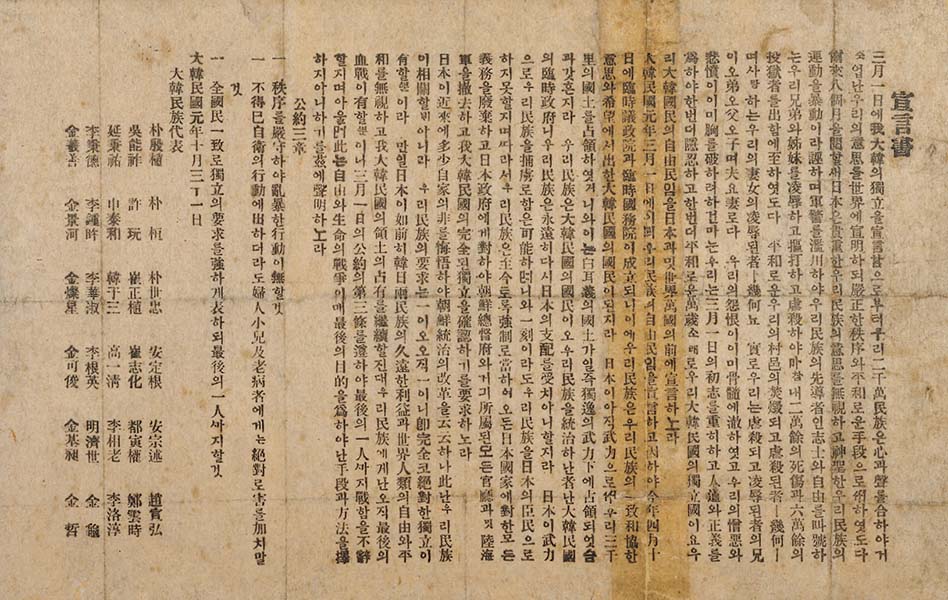 宣言書
三月一日에我大韓의獨立을宣言함으로부터우리二千萬民族은心과聲을合하야거
즛업난우리의意思를世界에宣明하되嚴正한秩序와平和로운手段으로써하엿도다
爾來八個月을閱할새日本은貴重한우리民族의意思를無視하고神聖한우리民族의
運動을暴動이라誣하며軍警을濫用하야우리民族의先導者인志士와自由를號하
는우리兄弟와姊妹를凌辱하고毆打하고虐殺하야마참내二萬餘의死傷과六萬餘의
投獄者를出함에至하엿도다 平和로운우리의村邑의焚燬되고虐殺된者ㅣ幾何ㅣ
며사랑하는우리의妻女의凌辱된者ㅣ幾何뇨 實로우리는虐殺되고凌辱된者의兄
이오弟오父오子며夫요妻로다 우리의怨恨이이미骨髓에澈하엿고우리의憎惡와
悲憤이이미胸을破하려하건마는우리는三月一日의初志를重히하고人道와正義를
爲하야한번더隱忍하고한번더平和로운萬歲소래로우리大韓民國의獨立國이요우
리大韓民國의自由民임을日本과밋世界萬國의前에宣言하노라
大韓民國元年三月一日에이미우리民族의自由民임을宣言하고因하야今年四月十
日에臨時議政院과臨時國務院이成立되니이에우리民族은우리民族의一致和協한
意思와希望에서出한大韓民國의國民이된지라 日本이아직武力으로써우리三千
里의國土를占領하엿거니와이는白耳義의國土가일즉獨逸의武力下에占領되엿슴
과갓흔지라 우리民族은大韓民國의國民이오우리民族을統治하난者난大韓民國
의臨時政府니우리民族은永遠히다시日本의支配를受치아니할지라 日本이武力
으로우리民族을捕虜로함은可能하려니와一刻이라도우리民族을日本의臣民으로
하지못할지며따라서우리民族은至今토록强制로當하여오든日本國家에對한모든
義務를廢棄하고日本政府에게對하야朝鮮總督府와거기所屬된모든官廳과밋陸海
軍을撤去하고我大韓民國의完全된獨立을確認하기를要求하노라
日本이近來에多少自家의非를悔悟하야朝鮮統治의改革을云云하나此난우리民族
이相關할바아니라 우리民族의要求는이오오즉一이니卽完全코絕對한獨立이
有할이라 만일日本이如前히韓日兩民族의久遠한利益과世界人類의自由와平
和를無視하고我大韓民國의領土의占有를繼續할진대우리民族에게난오직最後의
血戰이有할이니三月一日의公約의第三條를遵하야最後의一人까지戰함을不辭
할지며아울너此는自由와生命의戰爭이매最後의目的을爲하야난手段과方法을擇
하지아니하기를茲에聲明하노라
公約三章
一 秩序를嚴守하야亂暴한行動이無할것
一 不得已自衛의行動에出하더라도婦人小兒及老病者에게는絕對로害를加치말
것
一 全國民一致로獨立의要求를强하게表하되最後의一人까지할것
大韓民國元年十月三十一日
大韓民族代表
朴殷植 朴桓 朴世忠 安定根 安宗述 趙宣弘
吳能祚 許玩 崔正植 崔志化 都寅權 鄭雲時
延秉祐 申泰和 韓于三 高一淸 李相老 李洛淳
李秉德 李鍾旿 李華淑 李根英 明濟世 金鏥
金羲善 金景河 金燦星 金可俊 金基昶 金哲